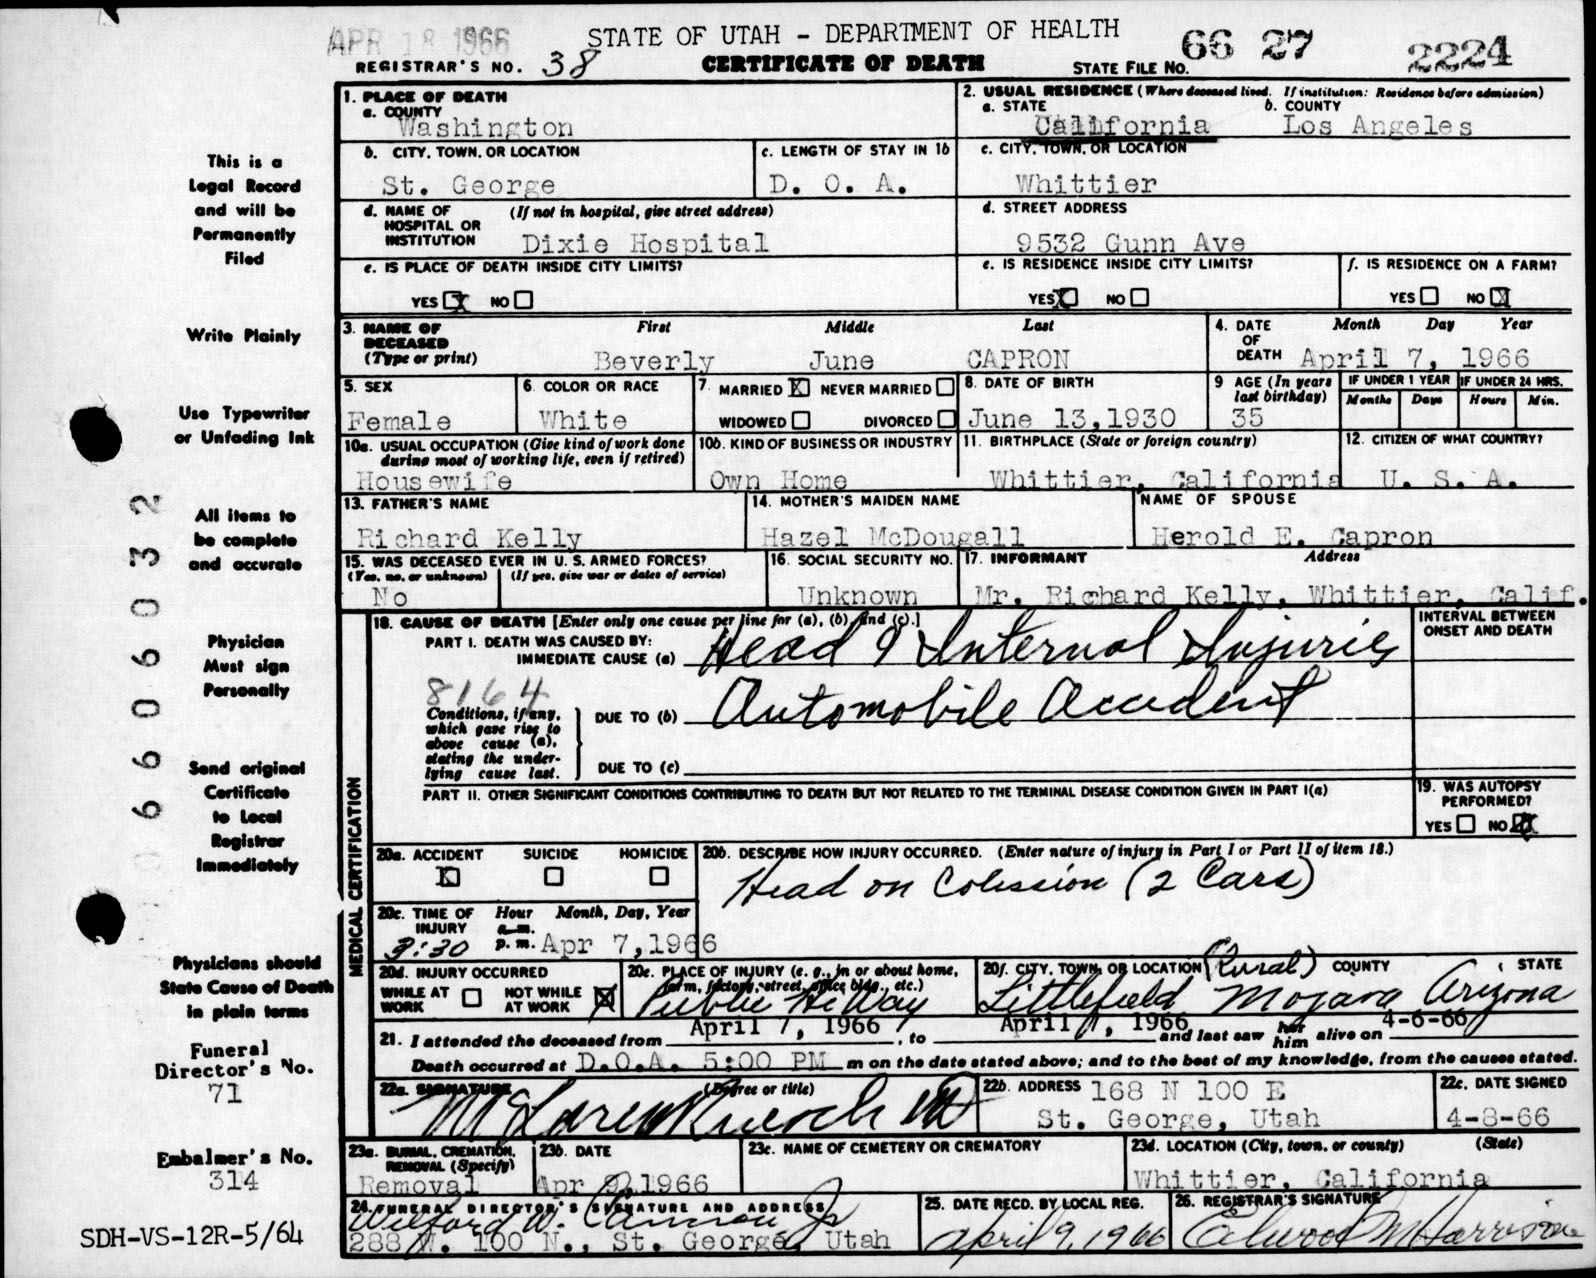 APR 18 1966
STATE OF UTAH - DEPARTMENT OF HEALTH
66 27 2224
REGISTRAR'S NO. 38
CERTIFICATE OF DEATH
STATE FILE NO.
This is a
Legal Record
and will be
Permanently
Filed
Write Plainly
Use Typewriter
or Unfading Ink
All items to
be complete
and accurate
Physician
Must sign
Personally
Send original
Certificate
to Local
Registrar
Immediately
Physicians should
State Cause of Death
in plain terms
Funeral
Director's No.
71
Embalmer's No.
314
SDH-VS-12R-5/64
1. PLACE OF DEATH
a. COUNTY
Washington
2. USUAL RESIDENCE (Where deceased lived. If institution: Residence before admission)
a. STATE b. COUNTY
California Los Angeles
b. CITY, TOWN, OR LOCATION
St. George
c. LENGTH OF STAY IN 1b
D. O. A.
c. CITY, TOWN, OR LOCATION
Whittier
d. NAME OF HOSPITAL OR INSTITUTION (If not in hospital, give street address)
Dixie Hospital
d. STREET ADDRESS
9532 Gunn Ave
e. IS PLACE OF DEATH INSIDE CITY LIMITS?
YES X NO
e. IS RESIDENCE INSIDE CITY LIMITS?
YES X NO
f. IS RESIDENCE ON A FARM?
YES NO X
3. NAME OF DECEASED (Type or print)
First Middle Last
Beverly June CAPRON
4. DATE OF DEATH
Month Day Year
April 7, 1966
5. SEX
Female
6. COLOR OR RACE
White
7. MARRIED X NEVER MARRIED
WIDOWED DIVORCED
8. DATE OF BIRTH
June 13,1930
9 AGE (In years last birthday)
35
IF UNDER 1 YEAR
Months Days
IF UNDER 24 HRS.
Hours Min.
10a. USUAL OCCUPATION (Give kind of work done
during most of working life, even if retired)
Housewife
10b. KIND OF BUSINESS OR INDUSTRY
Own Home
11. BIRTHPLACE (State or foreign country)
Whittier, California
12. CITIZEN OF WHAT COUNTRY?
U. S. A.
13. FATHER'S NAME
Richard Kelly
14. MOTHER'S MAIDEN NAME
Hazel McDougall
NAME OF SPOUSE
Herold E. Capron
15. WAS DECEASED EVER IN U. S. ARMED FORCES?
(Yes, no, or unknown) (If yes, give war or dates of service)
No
16. SOCIAL SECURITY NO.
Unknown
17. INFORMANT Address
Mr. Richard Kelly, Whittier, Calif.
MEDICAL CERTIFICATION
18. CAUSE OF DEATH [Enter only one cause per line for (a), (b), and (c).]
PART I. DEATH WAS CAUSED BY:
IMMEDIATE CAUSE (a) Head & Internal Injuries
8164
Conditions, if any,
which gave rise to
above cause (a),
stating the under-
lying cause last.
DUE TO (b) Automobile Accident
DUE TO (c)
INTERVAL BETWEEN
ONSET AND DEATH
PART II. OTHER SIGNIFICANT CONDITIONS CONTRIBUTING TO DEATH BUT NOT RELATED TO THE TERMINAL DISEASE CONDITION GIVEN IN PART I(a)
19. WAS AUTOPSY
PERFORMED?
YES NO X
20a. ACCIDENT SUICIDE HOMICIDE
X
20b. DESCRIBE HOW INJURY OCCURRED. (Enter nature of injury in Part I or Part II of item 18.)
Head on Colission (2 Cars)
20c. TIME OF INJURY
Hour Month, Day, Year
a.m.
3:30 p.m. Apr 7,1966
20d. INJURY OCCURRED
WHILE AT WORK NOT WHILE AT WORK X
20e. PLACE OF INJURY (e. g., in or about home,
farm, factory, street, office bldg., etc.)
Public HiWay
20f. CITY, TOWN, OR LOCATION (Rural) COUNTY STATE
Littlefield Mojava Arizona
21. I attended the deceased from April 7, 1966, to April 7, 1966 and last saw her him alive on 4-6-66
Death occurred at D.O.A. 5:00 PM m on the date stated above; and to the best of my knowledge, from the causes stated.
22a. SIGNATURE (Degree or title)
22b. ADDRESS 168 N 100 E
St. George, Utah
22c. DATE SIGNED
4-8-66
23a. BURIAL, CREMATION,
REMOVAL (Specify)
Removal
23b. DATE
Apr 9,1966
23c. NAME OF CEMETERY OR CREMATORY
23d. LOCATION (City, town, or county) (State)
Whittier, California
24. FUNERAL DIRECTOR'S SIGNATURE AND ADDRESS
Wilford W. Cannon Jr
288 W. 100 N., St. George, Utah
25. DATE RECD. BY LOCAL REG.
April 9, 1966
26. REGISTRAR'S SIGNATURE
Elwood M Harrison
6606032